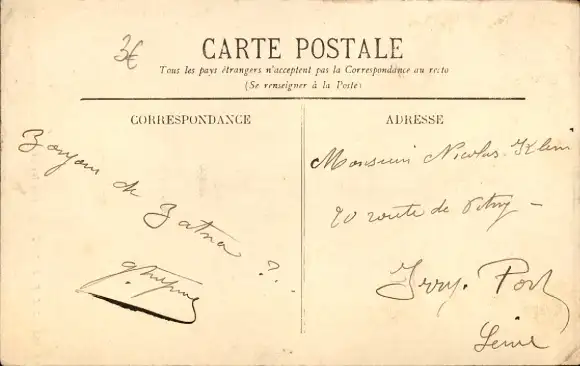 3€
CARTE POSTALE
Tous les pays étrangers n'acceptent pas la Correspondance au recto
(Se renseigner à la Poste)
CORRESPONDANCE
ADRESSE
Bonjour de Batna
Monsieur Nicolas Klein
90 route de Vitry –
Ivry. Port
Seine